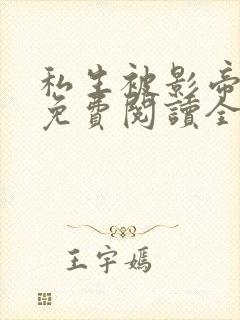 私生被影帝
免費閱讀全
王宇嫣